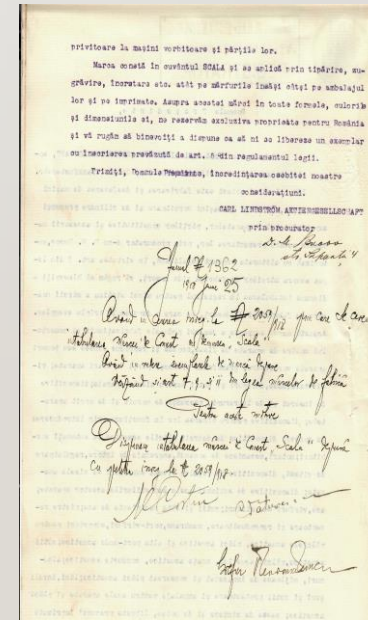 privitoare la mașini vorbitoare și părțile lor.
Marca constă în cuvântul SCALA și se aplică prin tipărire, zu-
grăvire, încrstare etc. atât pe mărfurile însăși cât și pe ambalajul
lor și pe imprimate. Asupra acestei mărci în toate formele, culorile
și dimensiunile ei, ne rezervăm exclusiva proprietate pentru România
și vă rugăm să binevoiți a dispune ca să ni se libereze un exemplar
cu înscrierea prevăzută de art. 6 din regulamentul legii.
Primiți, Domnule Președinte, încredințarea osebitei noastre
considerațiuni.
CARL LINDSTRÖM AKTIENGESELLSCHAFT
prin procurator
1362
25
Având în vedere 2059/918 prin care se cere
mărcei de Comerț „Scala"
Având în vedere de marcă depuse
Văzând și art 7, 9, și 11 din legea mărcilor de fabrică
Pentru aceste motive
Dispune mărcei de Comerț „Scala" depusă
cu petiția 2059/918